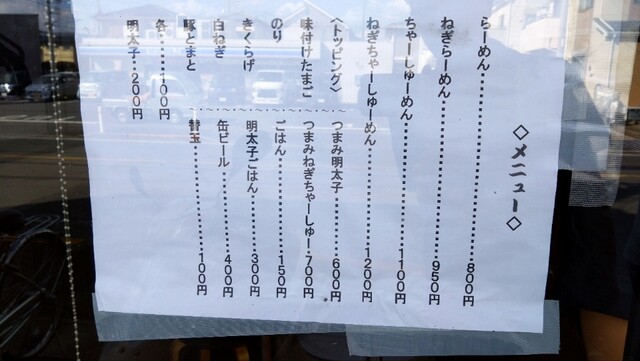 ◇メニュー◇
らーめん……………………800円
ねぎらーめん………………950円
ちゃーしゅーめん…………1100円
ねぎちゃーしゅーめん……1200円
〈トッピング〉
味付けたまご
のり
きくらげ
白ねぎ
豚とまと
各……100円
明太子…200円
つまみ明太子………600円
つまみねぎちゃーしゅー700円
ごはん………………150円
明太子ごはん………300円
缶ビール……………400円
替玉…………………100円